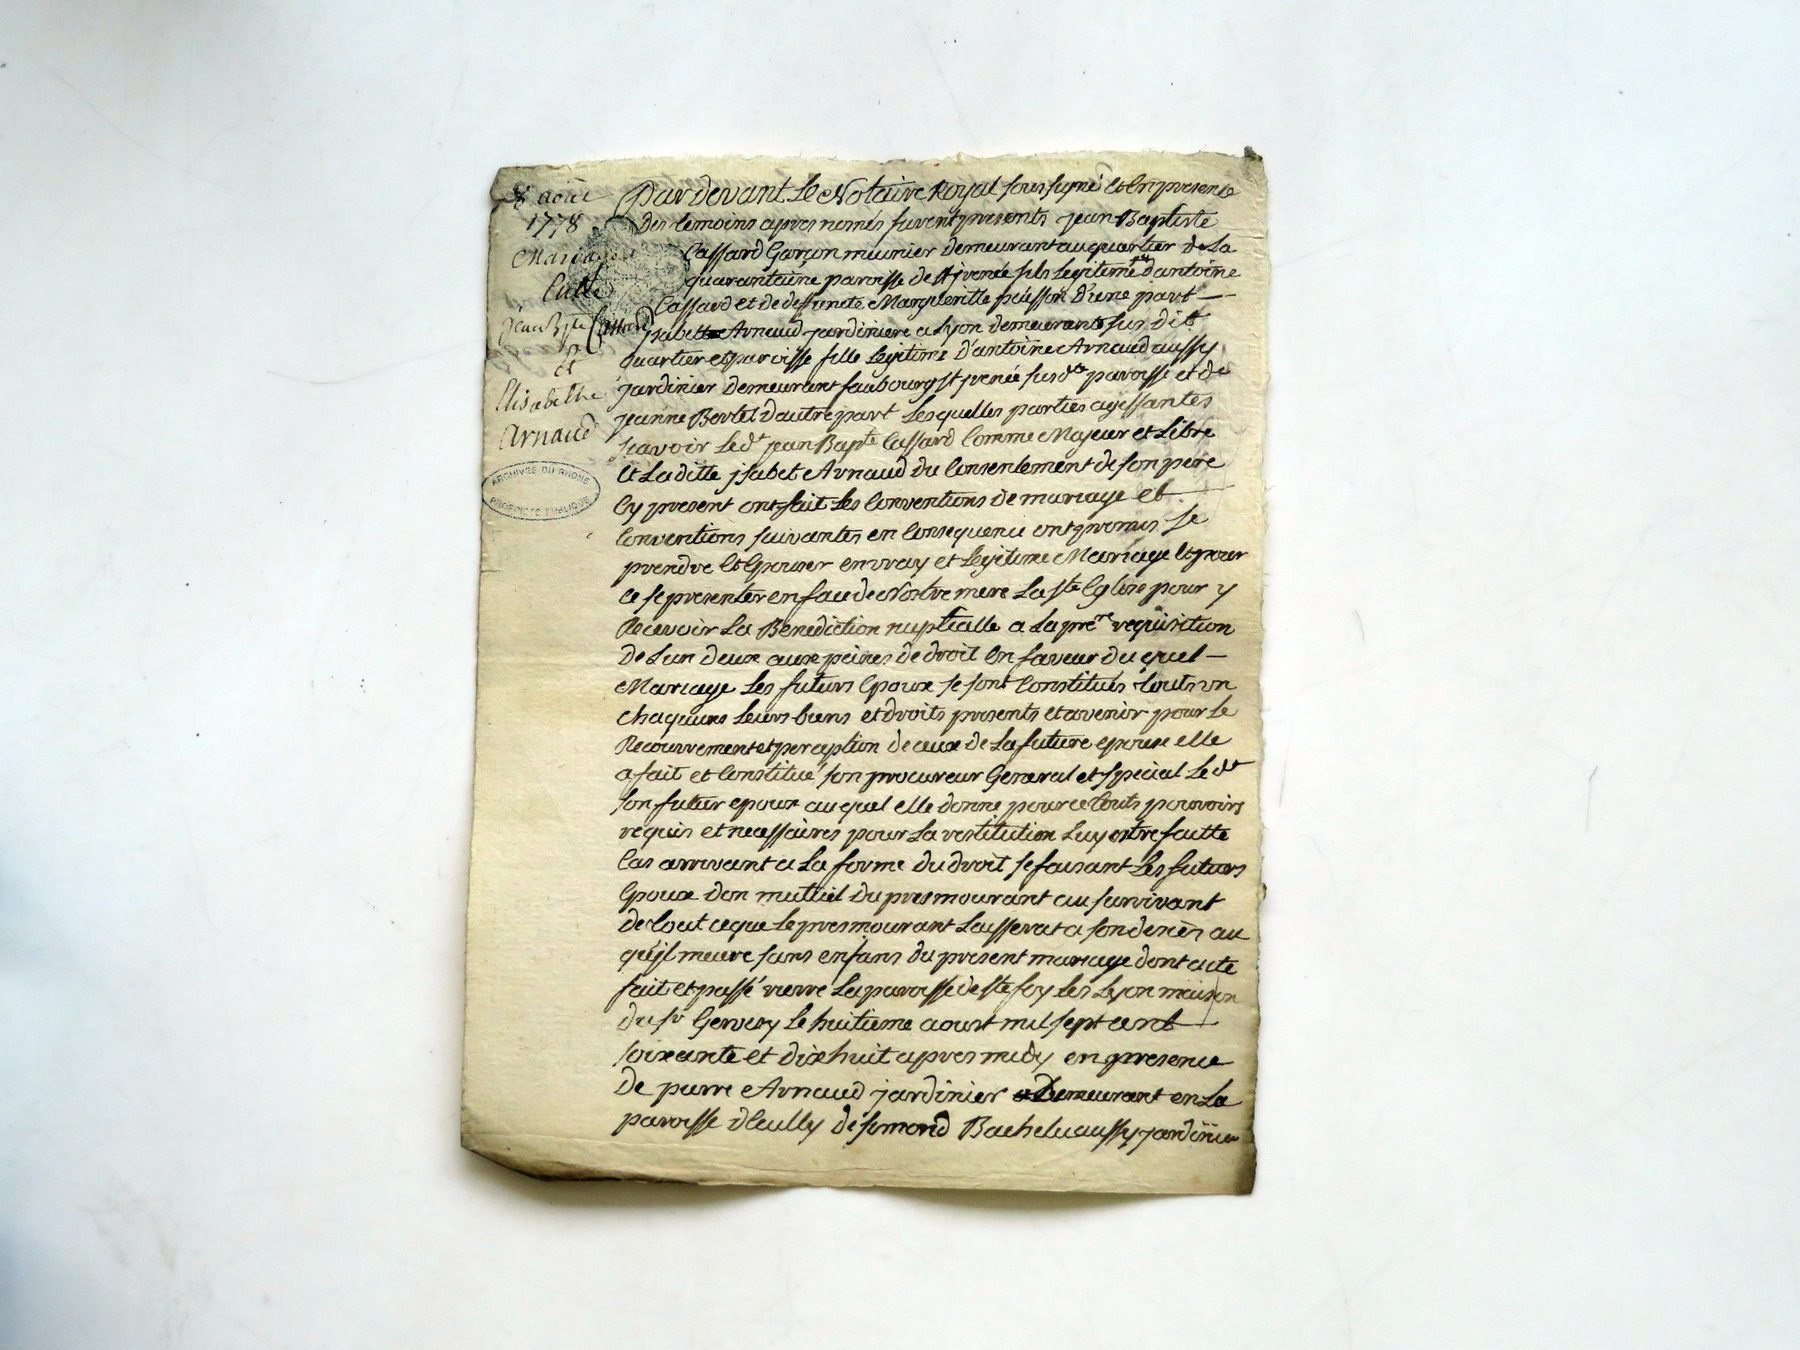 8 aout
1778
Mariage
Entre
Jean Bpte Cassard
et
Elisabethe
Arnaud
ARCHIVES DU RHONE
PROPRIETE PUBLIQUE
Par devant Le Notaire Royal soussigné et En presence
Des temoins apres només furent presents jean Baptiste
Cassard Garçon meunier demeurant au quartier de La
quarantaine paroisse de st jrenée fils Legitime d'antoine
Cassard et de deffuncte Margueritte d'une part
jsabette Arnaud jardiniere a Lyon demeurante sus dit
quartier et paroisse fille Legitime d'antoine Arnaud aussy
jardinier demeurant faubourg st jrenée susdte paroisse et de
jeanne Bertel d'autre part Lesquelles parties agissantes
scavoir Led. jean Bapte Cassard Comme Majeur et Libre
Et La ditte jsabet Arnaud du Consentement de son pere
Cy present ont fait Les Conventions de mariage et
Conventions suivantes en Consequence ont promis se
prendre et Epouser en vray et Legitime Mariage et pour
ce se presenter en face de Nostre mere La ste Eglise pour y
Recevoir La Benediction nuptialle a La pre.re requisition
de L'un deux aux peines de droit En faveur du quel
Mariage Les futurs Epoux se sont Constitués touts un
chaquuns Leurs biens et droits presents et avenir pour Le
Recouvrement et perception de ceux de La future epouse elle
a fait et Constitué son procureur General et special Led.t
son futur epoux au quel elle donne pour ce touts pouvoirs
requis et necessaires pour La restitution Luy estre faitte
Cas arrivant a La forme du droit se faisant Les futurs
Epoux don mutuel du presmourant au survivant
de tout ce que Le presmourant Laisserat a son deces au
qu'jl meure sans enfans du present mariage dont acte
fait et passé La paroisse de ste foy Les Lyon maison
du sr Le huitieme aoust mil sept cent
soixante et dix huit apres midy en presence
De pierre Arnaud jardinier Demeurant en La
paroisse d'Eculy de aussy jardinier